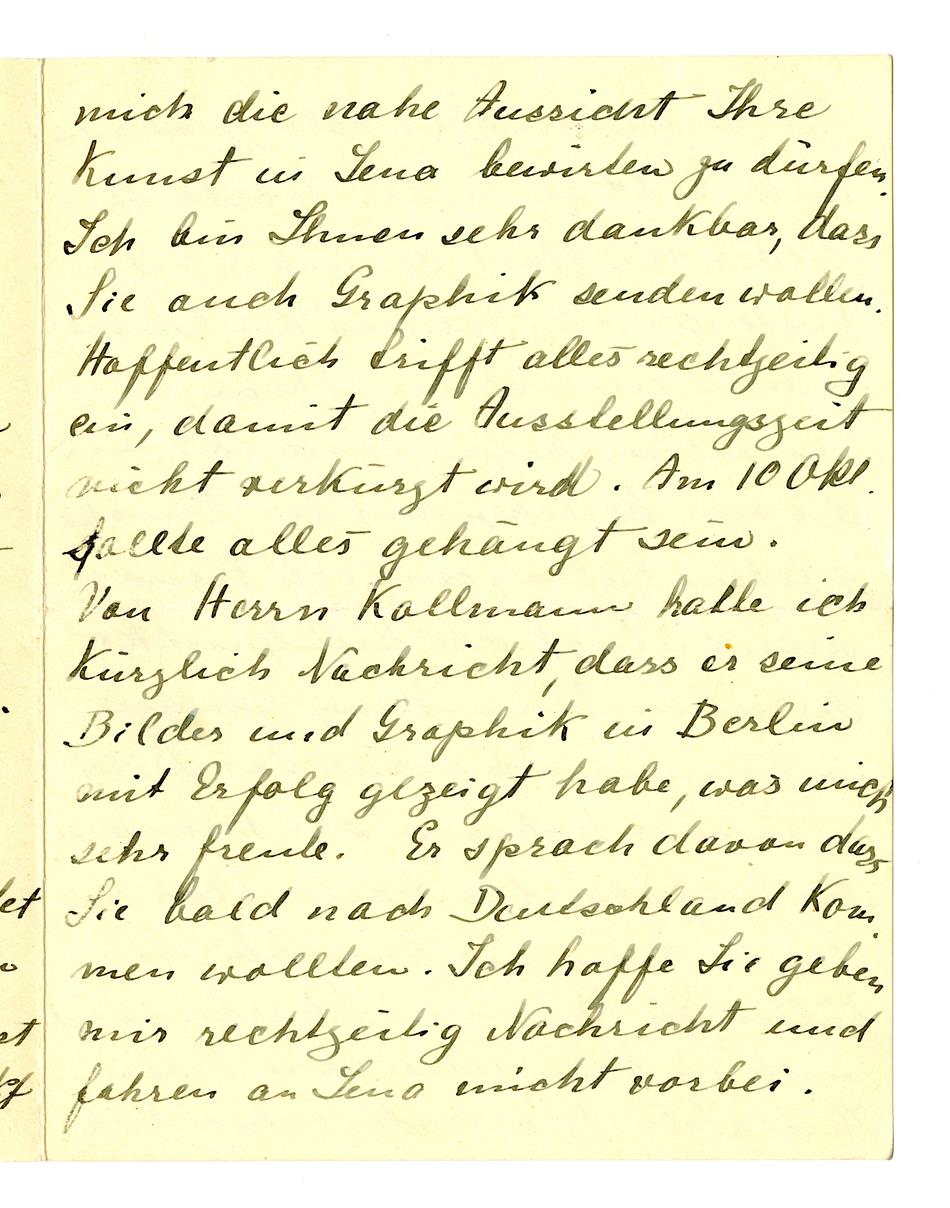 mich die nahe Aussicht Ihre
Kunst in Jena bewirten zu dürfen.
Ich bin Ihnen sehr dankbar, dass
Sie auch Graphik senden wollen.
Hoffentlich trifft alles rechtzeitig
ein, damit die Ausstellungszeit
nicht verkürzt wird. Am 10 Okt.
sollte alles gehängt sein.
Von Herrn Kollmann hatte ich
kürzlich Nachricht, dass er seine
Bilder und Graphik in Berlin
mit Erfolg gezeigt habe, was mich
sehr freute. Er sprach davon dass
Sie bald nach Deutschland kom-
men wollten. Ich hoffe Sie geben
mir rechtzeitig Nachricht und
fahren an Jena nicht vorbei.